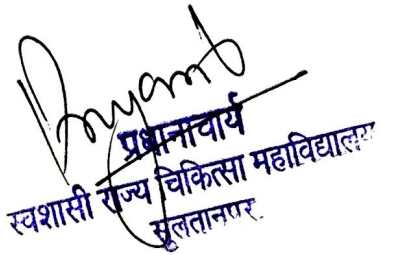 प्रधानाचार्य
स्वशासी राज्य चिकित्सा महाविद्यालय
सुलतानपुर